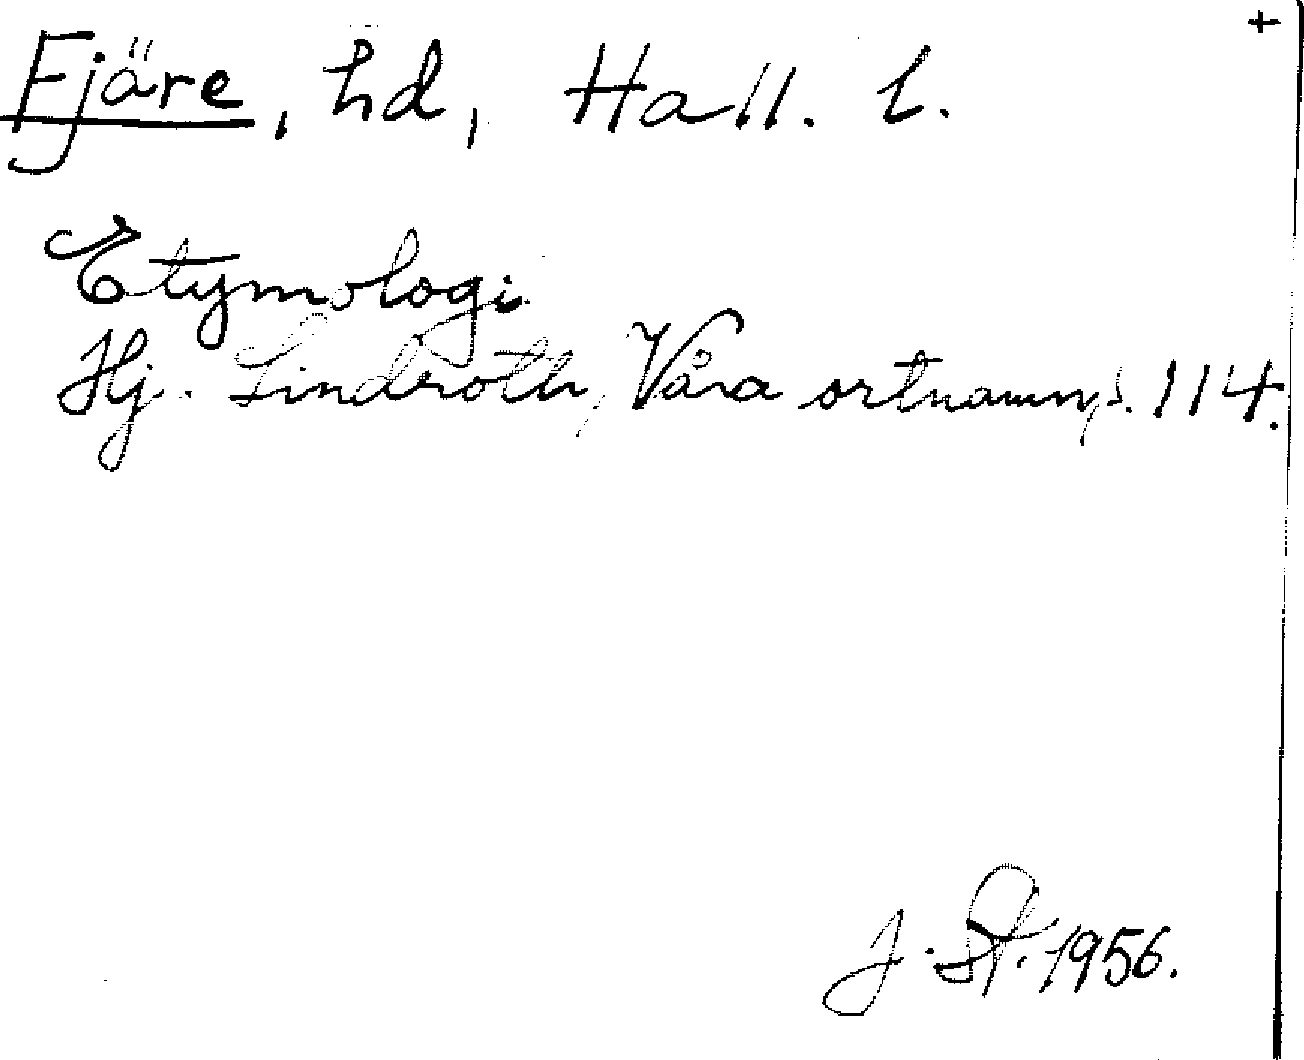 +
Fjäre, hd, Hall. l.
Etymologi
Hj. Lindroth, Våra ortnamn, s. 114.
J. St. 1956.